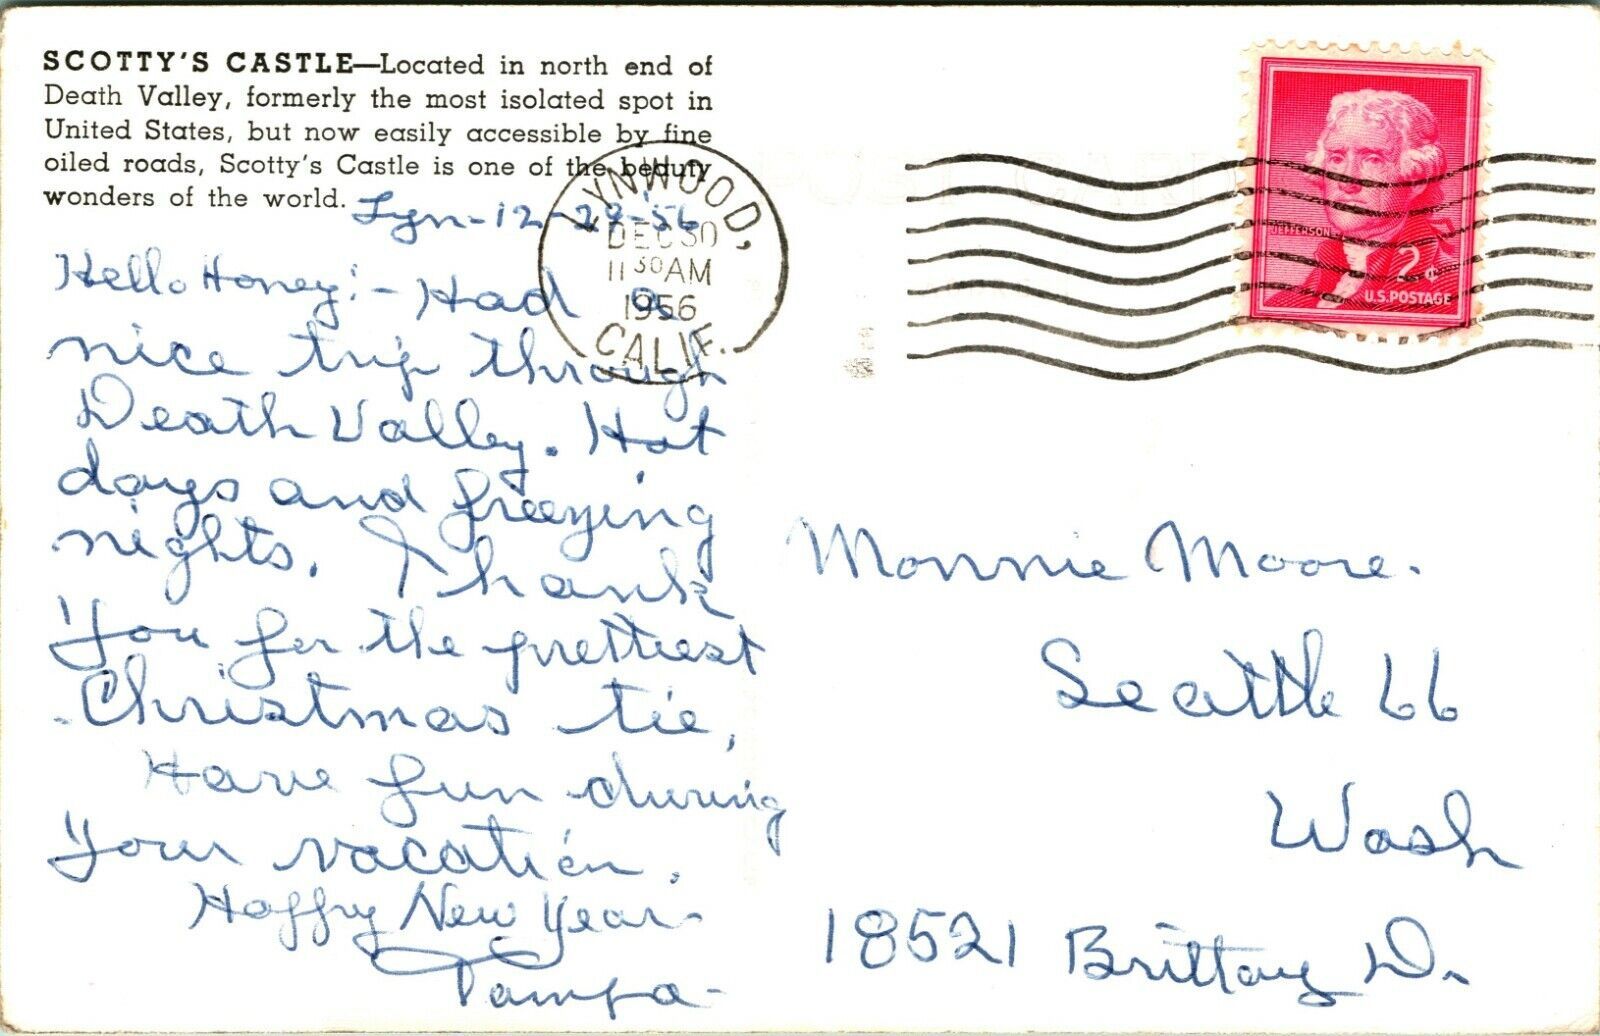 SCOTTY'S CASTLE—Located in north end of
Death Valley, formerly the most isolated spot in
United States, but now easily accessible by fine
oiled roads, Scotty's Castle is one of the beauty
wonders of the world.
Lyn-12-29-'56
Hello Honey:- Had a
nice trip through
Death Valley. Hot
days and freezing
nights. Thank
You for the prettiest
Christmas tie,
Have fun during
Your vacation.
Happy New Year-
Pampa-
LYNWOOD,
DEC 30
11 30 AM
1956
CALIF.
JEFFERSON
2¢
U.S. POSTAGE
Monnie Moore.
Seattle 66
Wash
18521 Brittany Dr.